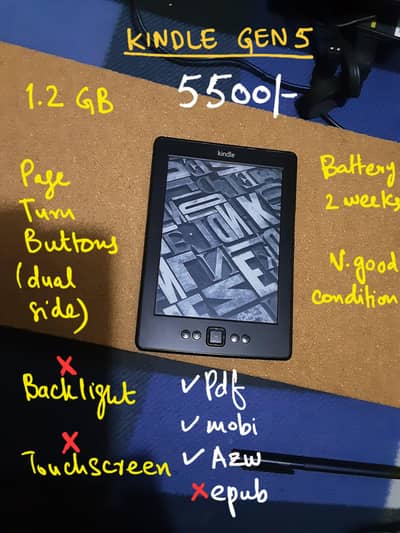 KINDLE GEN 5
1.2 GB
5500/-
kindle
Page
Turn
Buttons
(dual
side)
Battery
2 weeks
V. good
condition
× Backlight
× Touchscreen
✓ Pdf
✓ mobi
✓ Azw
× epub